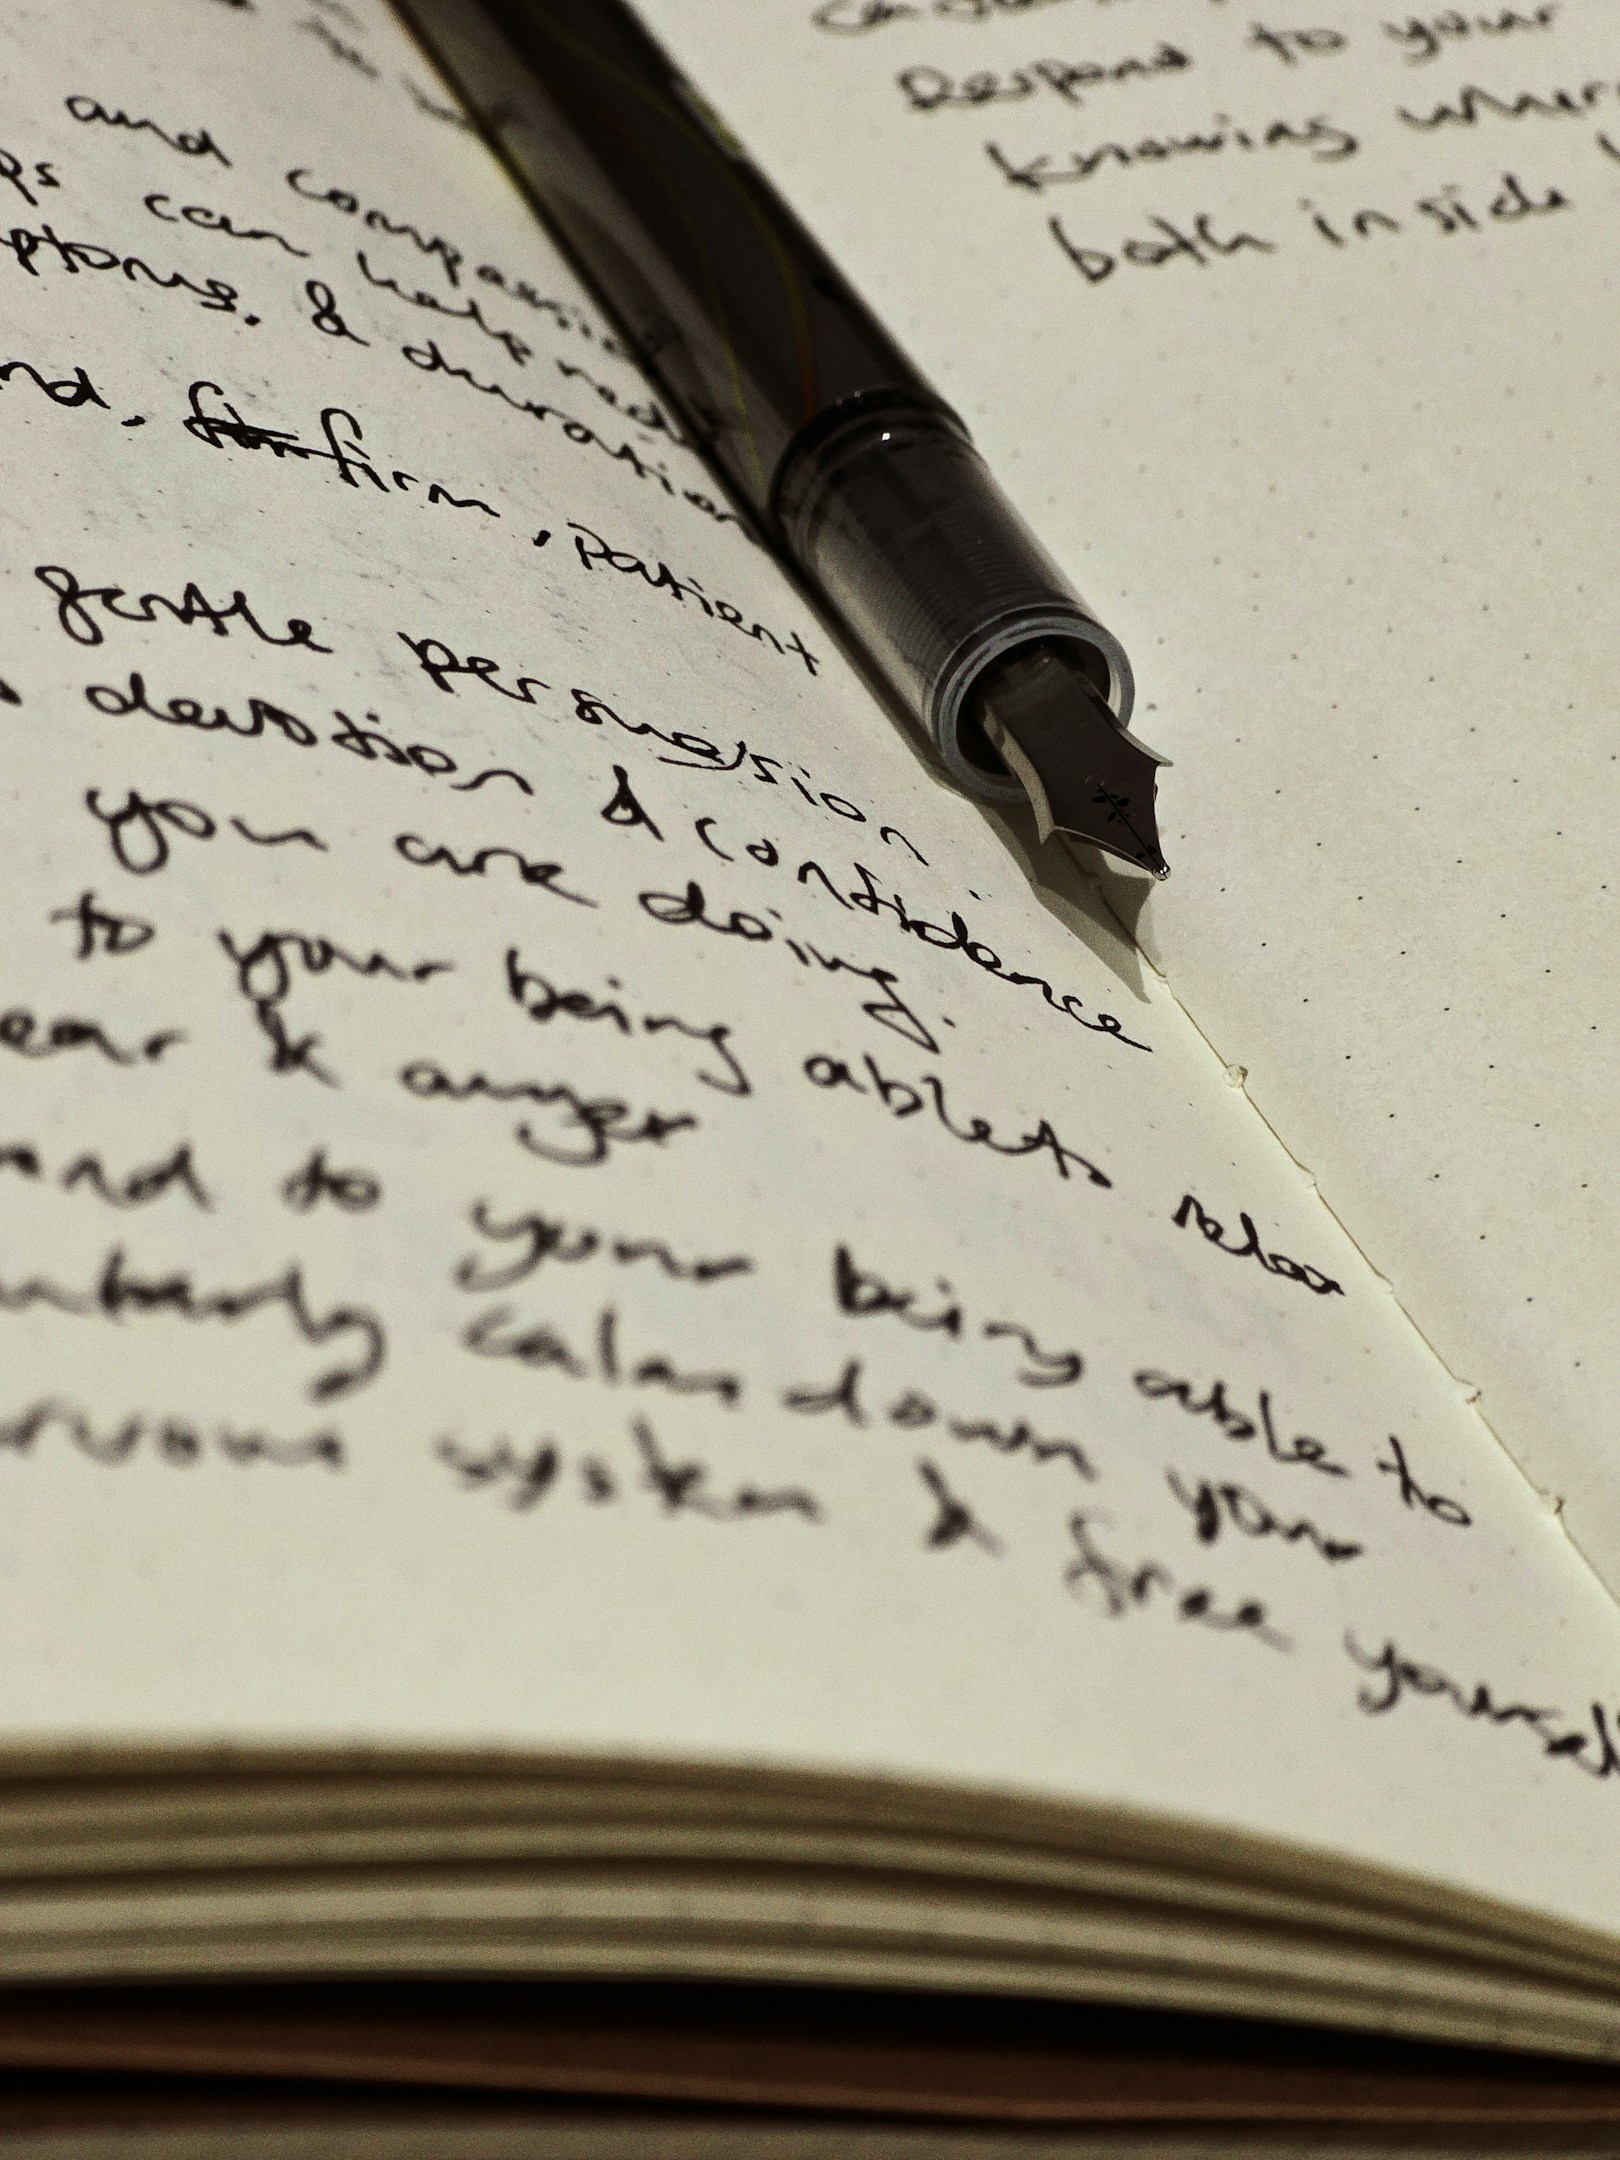 and compassion
can help redu
ptoms. & duration
nd, firm, Patient
gentle persuasion.
devotion & confidence
you are doing.
to your being able to relax
ear & anger
and to your being able to
calm down your
rvous system & free yoursel
Respond to your
knowing wher
both inside